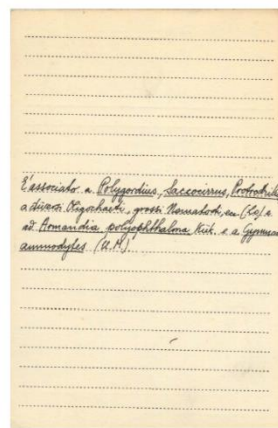 È associato a Polygordius, Saccocirrus, Protodrilus
a diversi Oligocheti, grossi Nematodi, ecc. (Lo) e
ad Armandia polyophthalma Kük. e a Gymnam
ammodytes (U.M.)